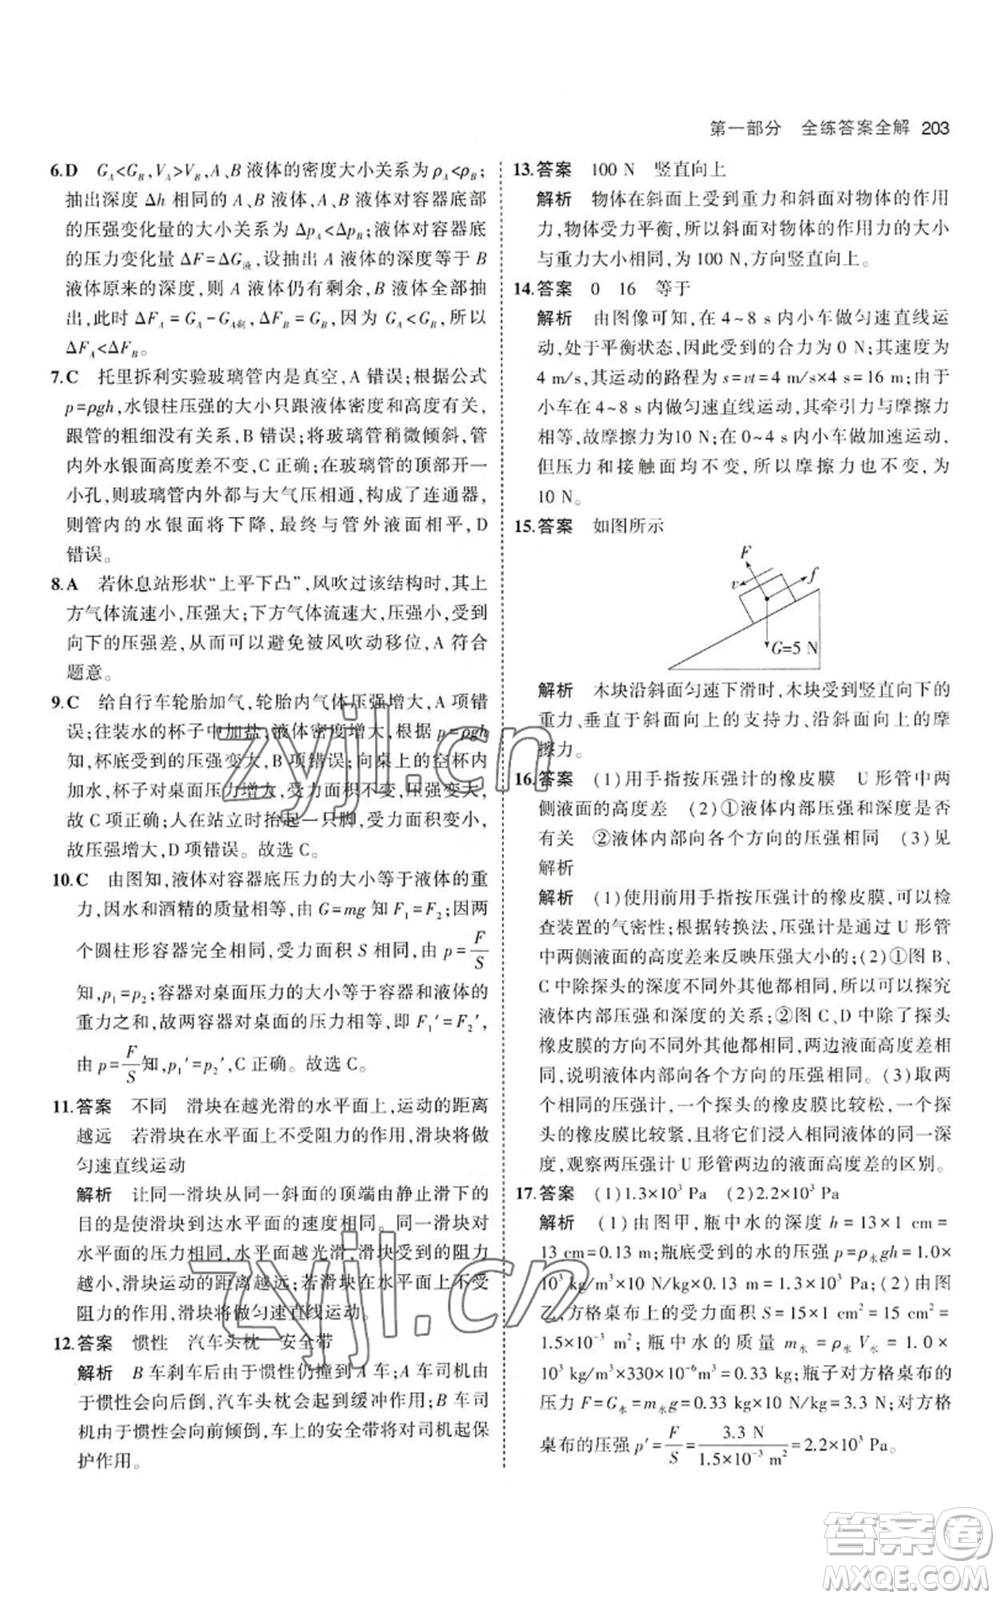 第一部分 全练答案全解 203
6.D G_A<G_B,V_A>V_B,A、B液体的密度大小关系为ρ_A<ρ_B;
抽出深度Δh相同的A、B液体,液体对容器底部
的压强变化量的大小关系为Δp_A<Δp_B;液体对容器底
的压力变化量ΔF=ΔG_液,设抽出A液体的深度等于B
液体原来的深度,则A液体仍有剩余,B液体全部抽
出,此时ΔF_A=G_A-G_A剩,ΔF_B=G_B,因为G_A<G_B,所以
ΔF_A<ΔF_B。
7.C 托里拆利实验玻璃管内是真空,A错误;根据公式
p=ρgh,水银柱压强的大小只跟液体密度和高度有关,
跟管的粗细没有关系,B错误;将玻璃管稍微倾斜,管
内外水银面高度差不变,C正确;在玻璃管的顶部开一
小孔,则玻璃管内外都与大气压相通,构成了连通器,
则管内的水银面将下降,最终与管外液面相平,D
错误。
8.A 若休息站形状“上平下凸”,风吹过该结构时,其上
方气体流速小,压强大;下方气体流速大,压强小,受到
向下的压强差,从而可以避免被风吹动移位,A符合
题意。
9.C 给自行车轮胎加气,轮胎内气体压强增大,A项错
误;往装水的杯子中加盐,液体密度增大,根据p=ρgh
知,杯底受到的压强变大,B项错误;向桌上的空杯内
加水,杯子对桌面的压力增大,受力面积不变,压强变大,
故C项正确;人在站立时抬起一只脚,受力面积变小,
故压强变大,D项错误。故选C。
10.C 由图知,液体对容器底压力的大小等于液体的重
力,因水和酒精的质量相等,由G=mg知F₁=F₂;因两
个圆柱形容器完全相同,受力面积S相同,由p=F/S
知,p₁=p₂;容器对桌面压力的大小等于容器和液体的
重力之和,故两容器对桌面的压力相等,即F₁′=F₂′,
由p=F/S知,p₁′=p₂′,C正确。故选C。
11.答案 不同 滑块在越光滑的水平面上,运动的距离
越远 若滑块在水平面上不受阻力的作用,滑块将做
匀速直线运动
解析 让同一滑块从同一斜面的顶端由静止滑下的
目的是使滑块到达水平面的速度相同。同一滑块对
水平面的压力相同,水平面越光滑,滑块受到的阻力
越小,滑块运动的距离越远;若滑块在水平面上不受
阻力的作用,滑块将做匀速直线运动。
12.答案 惯性 汽车头枕 安全带
解析 B车刹车后由于惯性仍撞到A车;A车司机由
于惯性会向后倒,汽车头枕会起到缓冲作用;B车司
机由于惯性会向前倾倒,车上的安全带将对司机起保
护作用。
13.答案 100 N 竖直向上
解析 物体在斜面上受到重力和斜面对物体的作用
力,物体受力平衡,所以斜面对物体的作用力的大小
与重力大小相同,为100 N,方向竖直向上。
14.答案 0 16 等于
解析 由图像可知,在4~8 s内小车做匀速直线运
动,处于平衡状态,因此受到的合力为0 N;其速度为
4 m/s,其运动的路程为s=vt=4 m/s×4 s=16 m;由于
小车在4~8 s内做匀速直线运动,其牵引力与摩擦力
相等,故摩擦力为10 N;在0~4 s内小车做加速运动,
但压力和接触面均不变,所以摩擦力也不变,为
10 N。
15.答案 如图所示
F
v
f
G=5 N
解析 木块沿斜面匀速下滑时,木块受到竖直向下的
重力,垂直于斜面向上的支持力,沿斜面向上的摩
擦力。
16.答案 (1)用手指按压强计的橡皮膜 U形管中两
侧液面的高度差 (2)①液体内部压强和深度是否
有关 ②液体内部向各个方向的压强相同 (3)见
解析
解析 (1)使用前用手指按压强计的橡皮膜,可以检
查装置的气密性;根据转换法,压强计是通过U形管
中两侧液面的高度差来反映压强大小的;(2)①图B、
C中除探头的深度不同外其他都相同,所以可以探究
液体内部压强和深度的关系;②图C、D中除了探头
橡皮膜的方向不同外其他都相同,两边液面高度差相
同,说明液体内部向各个方向的压强相等。(3)取两
个相同的压强计,一个探头的橡皮膜比较松,一个探
头的橡皮膜比较紧,将它们浸入相同液体的同一深
度,观察两压强计U形管两边的液面高度差的区别。
17.答案 (1)1.3×10³ Pa (2)2.2×10³ Pa
解析 (1)由图甲,瓶中水的深度h=13×1 cm=
13 cm=0.13 m;瓶底受到的水的压强p=ρ_水gh=1.0×
10³ kg/m³×10 N/kg×0.13 m=1.3×10³ Pa;(2)由图
乙,方格桌布上的受力面积S=15×1 cm²=15 cm²=
1.5×10⁻³ m²;瓶中水的质量m_水=ρ_水V_水=1.0×
10³ kg/m³×330×10⁻⁶ m³=0.33 kg;瓶对方格桌布的
压力F=G_水=m_水g=0.33 kg×10 N/kg=3.3 N;对方格
桌布的压强p′=F/S=3.3 N/1.5×10⁻³ m²=2.2×10³ Pa。
zyjl.cn
zyjl.cn
答案圈
MXQE.COM